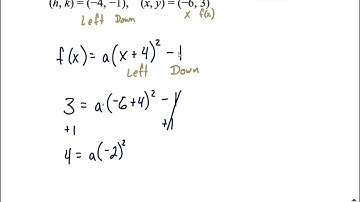 (h, k) = (−4, −1),   (x, y) = (−6, 3)
Left Down x f(x)
f(x) = a(x + 4)² − 1
Left Down
3 = a·(−6+4)² − 1
+1 +1
4 = a(−2)²